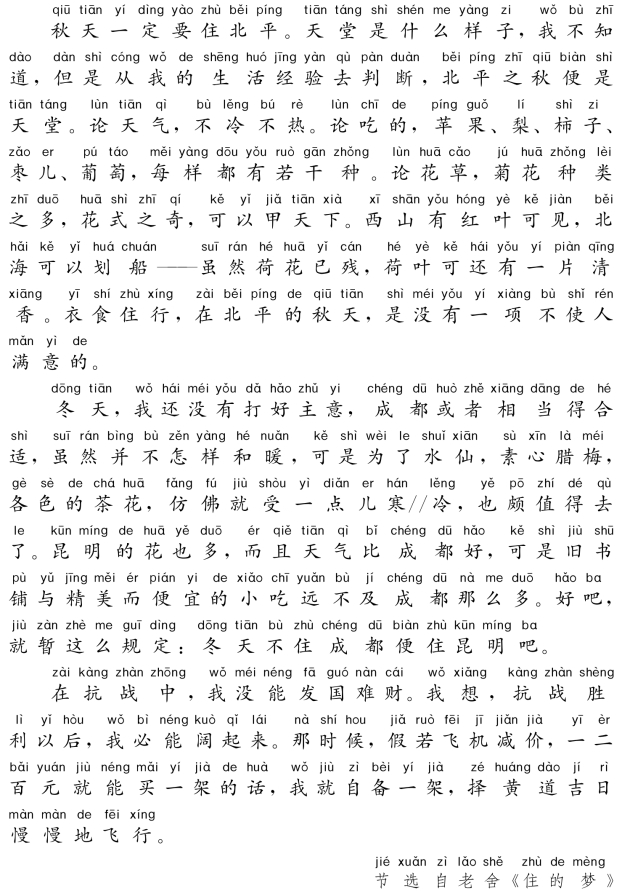 qiū tiān yí dìng yào zhù běi píng tiān táng shì shén me yàng zi wǒ bù zhī
秋天一定要住北平。天堂是什么样子,我不知
dào dàn shì cóng wǒ de shēng huó jīng yàn qù pàn duàn běi píng zhī qiū biàn shì
道,但是从我的生活经验去判断,北平之秋便是
tiān táng lùn tiān qì bù lěng bú rè lùn chī de píng guǒ lí shì zi
天堂。论天气,不冷不热。论吃的,苹果、梨、柿子、
zǎo er pú táo měi yàng dōu yǒu ruò gān zhǒng lùn huā cǎo jú huā zhǒng lèi
枣儿、葡萄,每样都有若干种。论花草,菊花种类
zhī duō huā shì zhī qí kě yǐ jiǎ tiān xià xī shān yǒu hóng yè kě jiàn běi
之多,花式之奇,可以甲天下。西山有红叶可见,北
hǎi kě yǐ huá chuán suī rán hé huā yǐ cán hé yè kě hái yǒu yí piàn qīng
海可以划船——虽然荷花已残,荷叶可还有一片清
xiāng yī shí zhù xíng zài běi píng de qiū tiān shì méi yǒu yí xiàng bù shǐ rén
香。衣食住行,在北平的秋天,是没有一项不使人
mǎn yì de
满意的。
dōng tiān wǒ hái méi yǒu dǎ hǎo zhǔ yi chéng dū huò zhě xiāng dāng de hé
冬天,我还没有打好主意,成都或者相当得合
shì suī rán bìng bù zěn yàng hé nuǎn kě shì wèi le shuǐ xiān sù xīn là méi
适,虽然并不怎样和暖,可是为了水仙,素心腊梅,
gè sè de chá huā fǎng fú jiù shòu yì diǎn er hán lěng yě pō zhí dé qù
各色的茶花,仿佛就受一点儿寒//冷,也颇值得去
le kūn míng de huā yě duō ér qiě tiān qì bǐ chéng dū hǎo kě shì jiù shū
了。昆明的花也多,而且天气比成都好,可是旧书
pù yǔ jīng měi ér pián yi de xiǎo chī yuǎn bù jí chéng dū nà me duō hǎo ba
铺与精美而便宜的小吃远不及成都那么多。好吧,
jiù zàn zhè me guī dìng dōng tiān bù zhù chéng dū biàn zhù kūn míng ba
就暂这么规定:冬天不住成都便住昆明吧。
zài kàng zhàn zhōng wǒ méi néng fā guó nàn cái wǒ xiǎng kàng zhàn shèng
在抗战中,我没能发国难财。我想,抗战胜
lì yǐ hòu wǒ bì néng kuò qǐ lái nà shí hou jiǎ ruò fēi jī jiǎn jià yī èr
利以后,我必能阔起来。那时候,假若飞机减价,一二
bǎi yuán jiù néng mǎi yí jià de huà wǒ jiù zì bèi yí jià zé huáng dào jí rì
百元就能买一架的话,我就自备一架,择黄道吉日
màn màn de fēi xíng
慢慢地飞行。
jié xuǎn zì lǎo shě zhù de mèng
节选自老舍《住的梦》